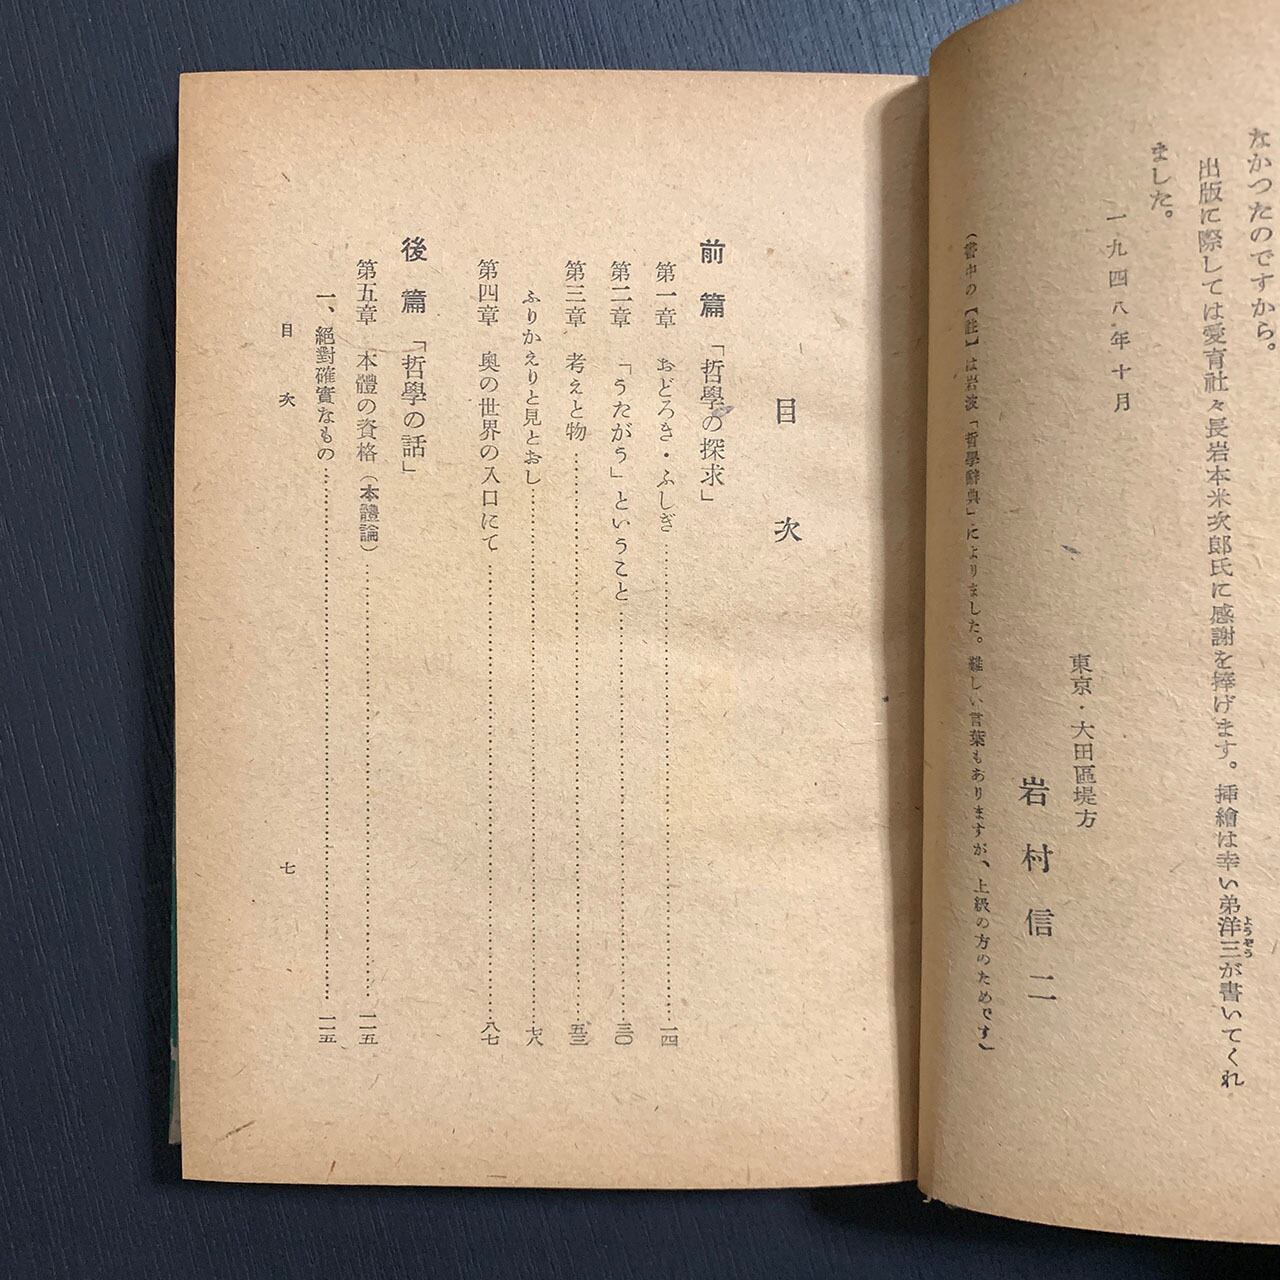 なかつたのですから。
出版に際しては愛育社々長岩本米次郎氏に感謝を捧げます。挿繪は幸い弟洋三が書いてくれ
ようぞう
ました。
一九四八年十月
東京・大田區堤方
岩村信二
(書中の【註】は岩波「哲學辭典」によりました。難しい言葉もありますが、上級の方のためです)
目次
前篇「哲學の探求」
第一章 おどろき・ふしぎ……一四
第二章 「うたがう」ということ……三〇
第三章 考えと物……五三
ふりかえりと見とおし……七八
第四章 奥の世界の入口にて……八七
後篇「哲學の話」
第五章 本體の資格(本體論)……一一五
一、絕對確實なもの……一一五
目次
七